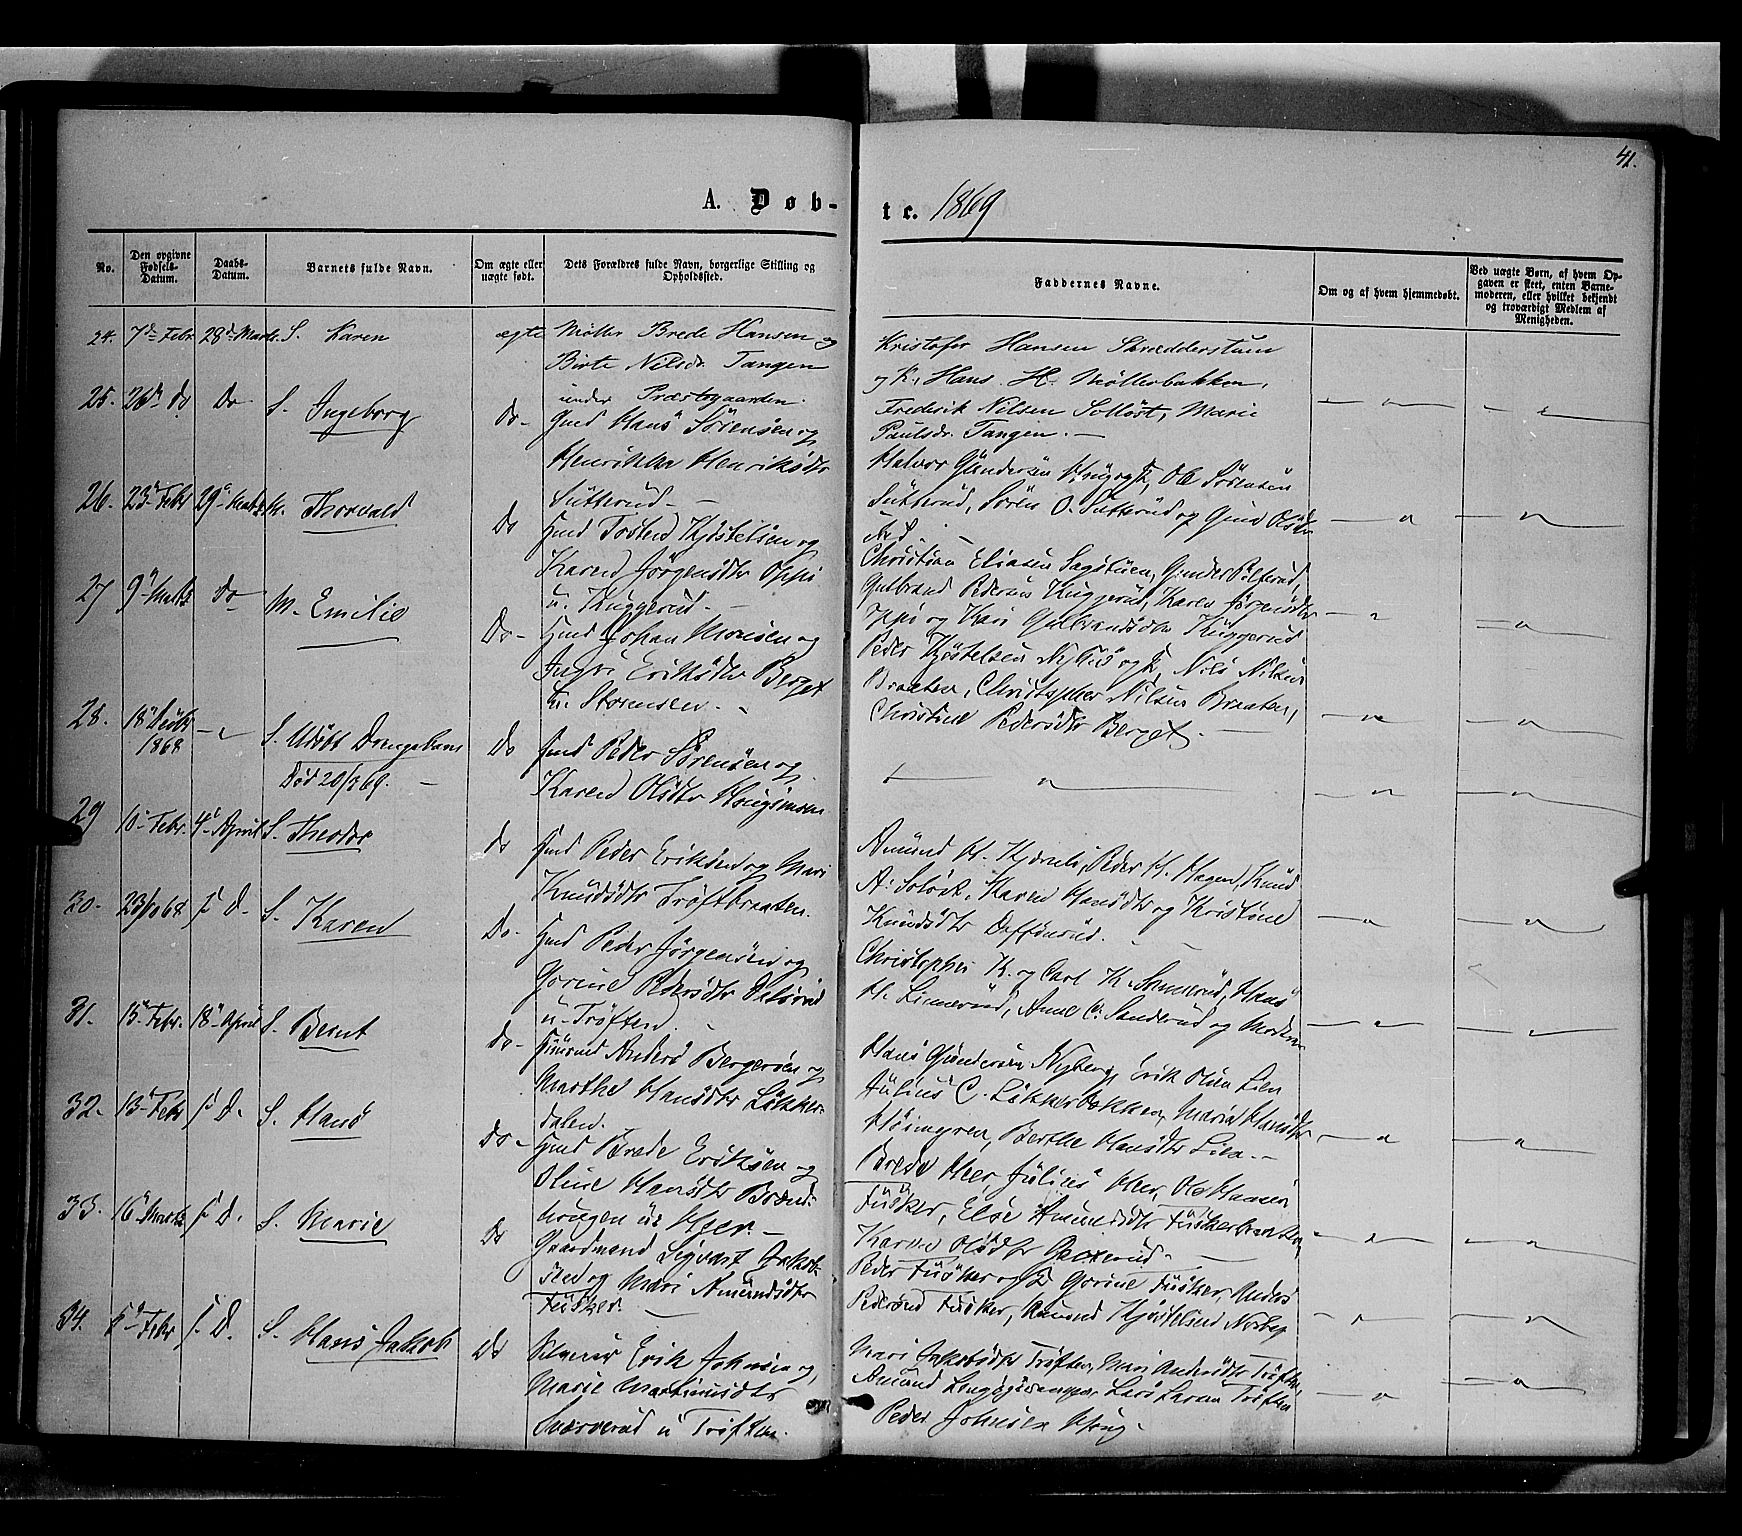 41.
A. Døb-
te. 1869
No.
Den opgivne Fødsels-Datum.
Daabs-Datum.
Barnets fulde Navn.
Om ægte eller uægte født.
Dets Forældres fulde Navn, borgerlige Stilling og Opholdssted.
Faddernes Navne.
Om og af hvem hjemmedøbt.
Ved uægte Børn, af hvem Opgaven er skeet, enten Barnemoderen, eller hvilket bekjendt og troværdigt Medlem af Menigheden.
24. 7de Febr. 28de Marts. S. Karen ægte Møller Brede Hansen og
Birte Nilsdr. Tangen
under Præstegaarden.
Kristofer Hansen Skrædderstuen
og K., Hans H. Møllerbakken,
Frederik Nilsen Solløst, Marie
Paulsdr. Tangen. —
25. 26de do Do S. Ingeborg Do- Gmd Hans Sörensen og
Henrikka Henriksdtr
Sutterud —
Halvor Gundersen Haug og K, Ole Sörensen
Sutterud, Sören O. Sutterud og Gina Olsdtr
26. 23de Febr 29de Marts M. Thorvald Do Hmd Tosten Kjöstelsen og
Karen Jörgensdtr Oppi
u. Kuggerud. —
Christian Eliasen Sagstuen, Gunder
Gulbrand Pedersen Kuggerud, Karen Jörgensdtr
Oppi og Kari Gulbrandsdtr Kuggerud
27 9de Marts Do M. Emilie Do- Hmd Johan Monsen og
Ingri Eriksdtr Berget
u. Storensen. -
Peder Kjöstelsen og K, Nils Nilsen
Braaten, Christopher Nilsen Braaten,
Christine Pedersdtr Berget. —
28. 18de Decbr 1868 S. Udöbt Drengebarn
Död 20/1 69. —
Do Gmd Peder Sörensen og
Karen Olsdtr Haugsmoen
29 10de Febr. 4de April S. Theodor do Gmd Peder Eriksen og Mari
Knudsdtr Tröftbraaten.
Amund H. Kjernli, Peder H. Hagen, Knud
A. Solöst, Karen Hansdtr og Kristine
Knudsdtr
30. 23/10 68 s. D. S. Karen Do- Hmd Peder Jörgensen og
Gorine Pedersdtr
u. Tröften.
Christopher K. og Carl K. Sanderud, Hans
H. Linnerud, Anne C. Sanderud og Moderen
31. 15de Febr. 18de April S. Bernt do- Huusmd Anders Bergersen og
Marthe Hansdtr Lökker-
dalen.
Hans Gundersen Nyberg, Erik Olsen Lien
Julius C. Lökkerbakken, Maria Hansdtr
Höimyren, Berthe Hansdtr Lien. -
32. 13de Febr s. D. S. Hans Do- Hmd Brede Eriksen og
Oline Hansdtr Brænd-
haugen u: Hjer. —
Brede Hjer Julius Hjer, Ole Hansen
Fusker, Else Amundsdtr Fuskerbraaten,
Karen Olsdtr
33. 16de Marts s. D. S. Marie Do Gaardmand Sigvart Jakob-
sen og Mari Amundsdtr
Fusker. —
Peder Fusker og K Gorine Fusker, Anders
Pedersen Fusker, Amund Kjöstelsen Norberg
34. 5de Febr s. D. S. Hans Jakob Do Selveier Erik Johnsen og
Marie Martinusdtr
Sværverud u Tröften.
Mari Jakobsdtr Tröften, Mari Andersdtr Tröften,
Amund Lars Larsen Tröften
Peder Johnsen Haug.